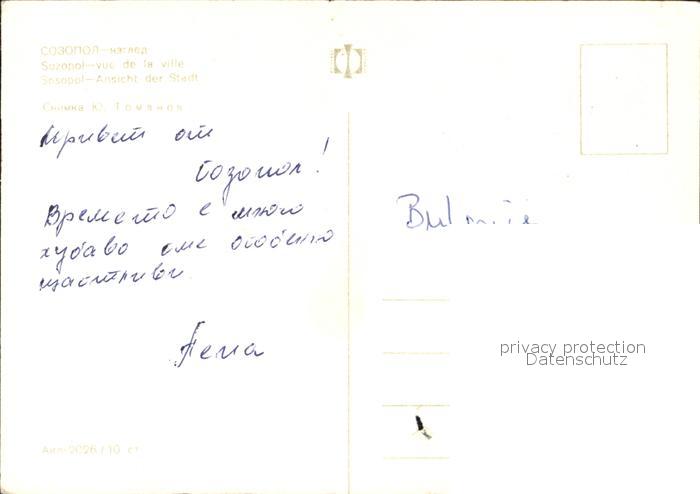 СОЗОПОЛ—изглед
Suzopol—vue de la ville
Sosopol—Ansicht der Stadt
Снимка Ю. Томанов
Привет от
Созопол!
Времето е много
хубаво сме особенно
щастливи.
Пепа
Акл-2026/10 ст.
privacy protection
Datenschutz